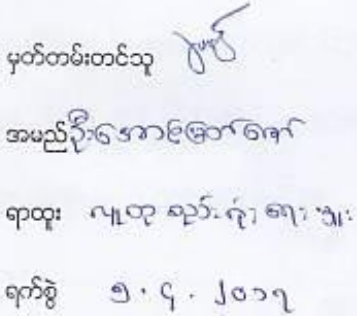 မှတ်တမ်းတင်သူ
အမည် ဦးအောင်မြတ်ကျော်
ရာထူး လူထု စည်းရုံးရေးမှူး
ရက်စွဲ ၅.၄.၂၀၁၇